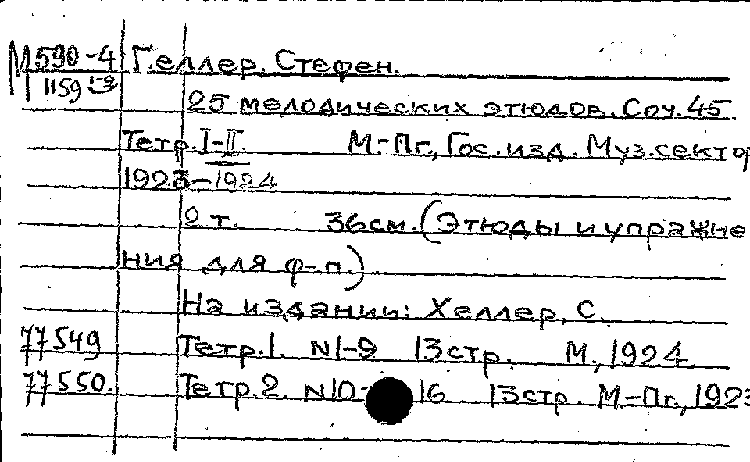 М590-4 Геллер, Стефен.
1159
25 мелодических этюдов. Соч.45.
Тетр. I-II. М.-Пг., Гос.изд. Муз.сектор
1923-1924
2 т. 36см. (Этюды и упражне
ния для ф-п.)
На издании: Хеллер, С.
77549 Тетр.1. N1-9 13стр. М., 1924
77550. Тетр.2. N10-16 13стр. М-Пг., 1923